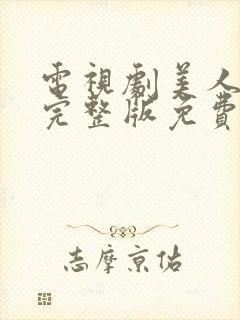 電視劇美人
完整版免費
志摩京佑